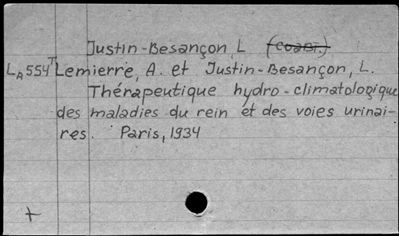 Justin-Besançon, L. (соавт.)
LA 554 Lemierre, A. et Justin-Besançon, L.
Thérapeutique hydro-climatologique
des maladies du rein et des voies urinai-
res. Paris, 1934
+